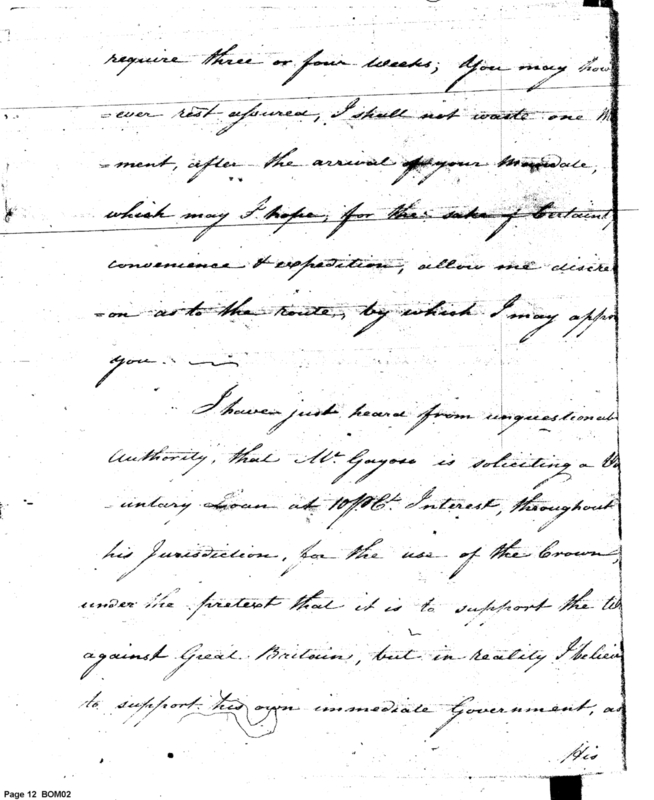 require three or four weeks; You may how
=ever rest assured, I shall not waste one M
=ment, after the arrival of your Mandate,
which may I hope, for the sake of Certaint
convenience & expedition, allow me discre
=on as to the route, by which I may appro
you.
I have just heard from unquestionab
Authority, that Mr. Gayoso is soliciting a Vo
-untary Loan at 10 PCt. Interest, throughout
his Jurisdiction, for the use of the Crown,
under the pretext that it is to support the
against Great Britain, but in reality I believ
to support his own immediate Government, as
His
Page 12 BOM02